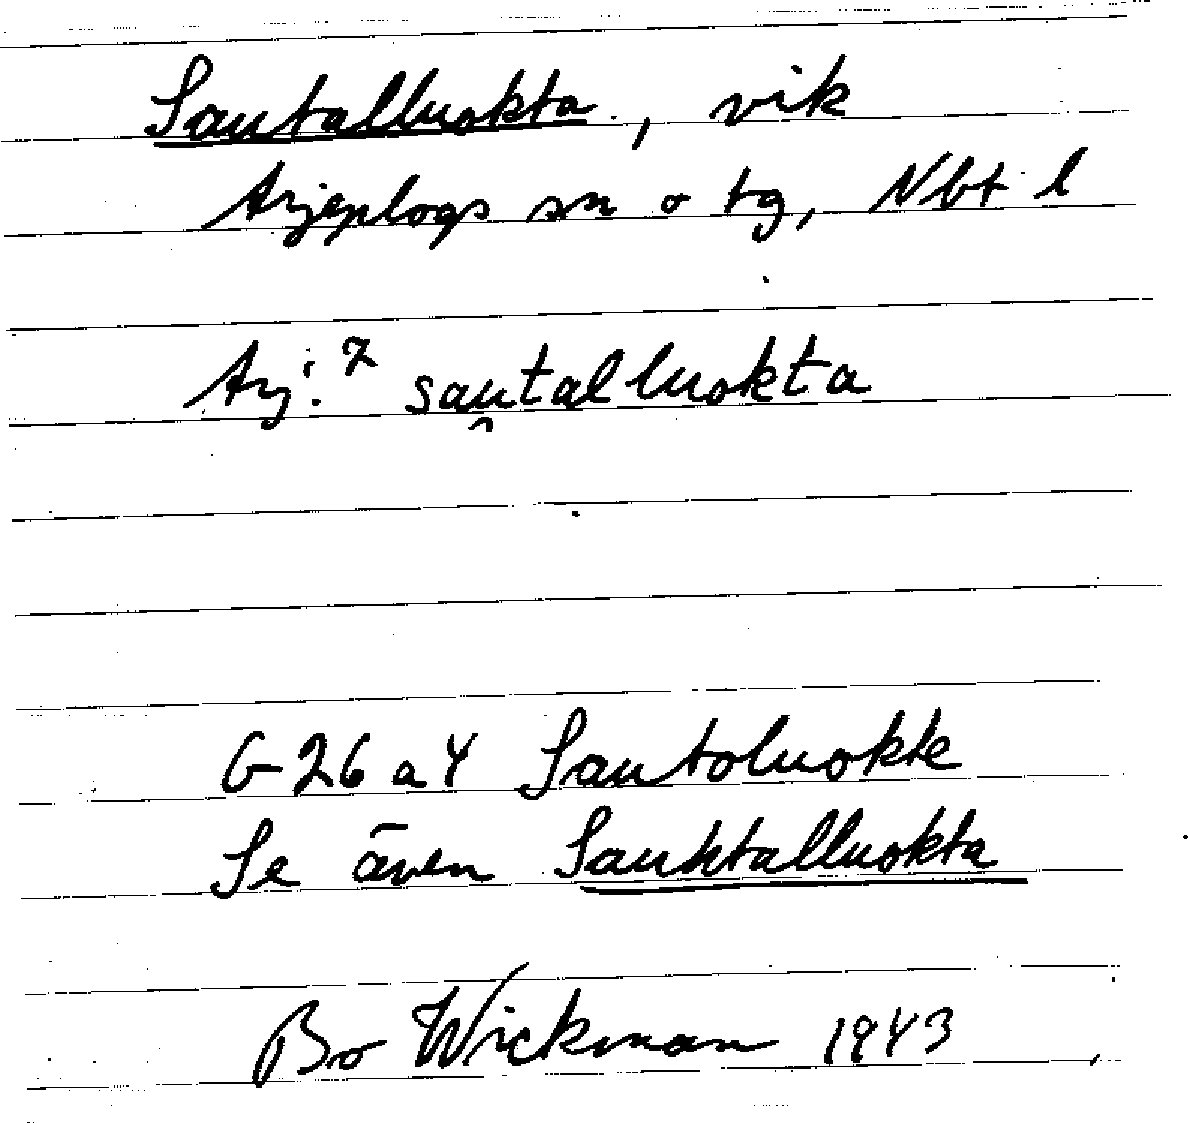 Sautalluokta, vik
Arjeplogs sn o tg, Nbt l
Arj: 7 sau̯talluokta
G 26 a 4 Sautoluokte
Se även Sauhtalluokta
Bo Wickman 1943